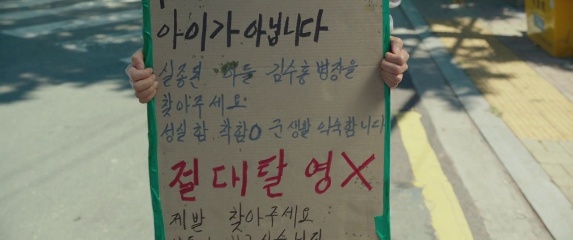 아이가 아닙니다
실종된 아들 김수홍 병장을
찾아주세요
성실함, 착함O 군생활 익숙합니다
절대탈영X
제발 찾아주세요